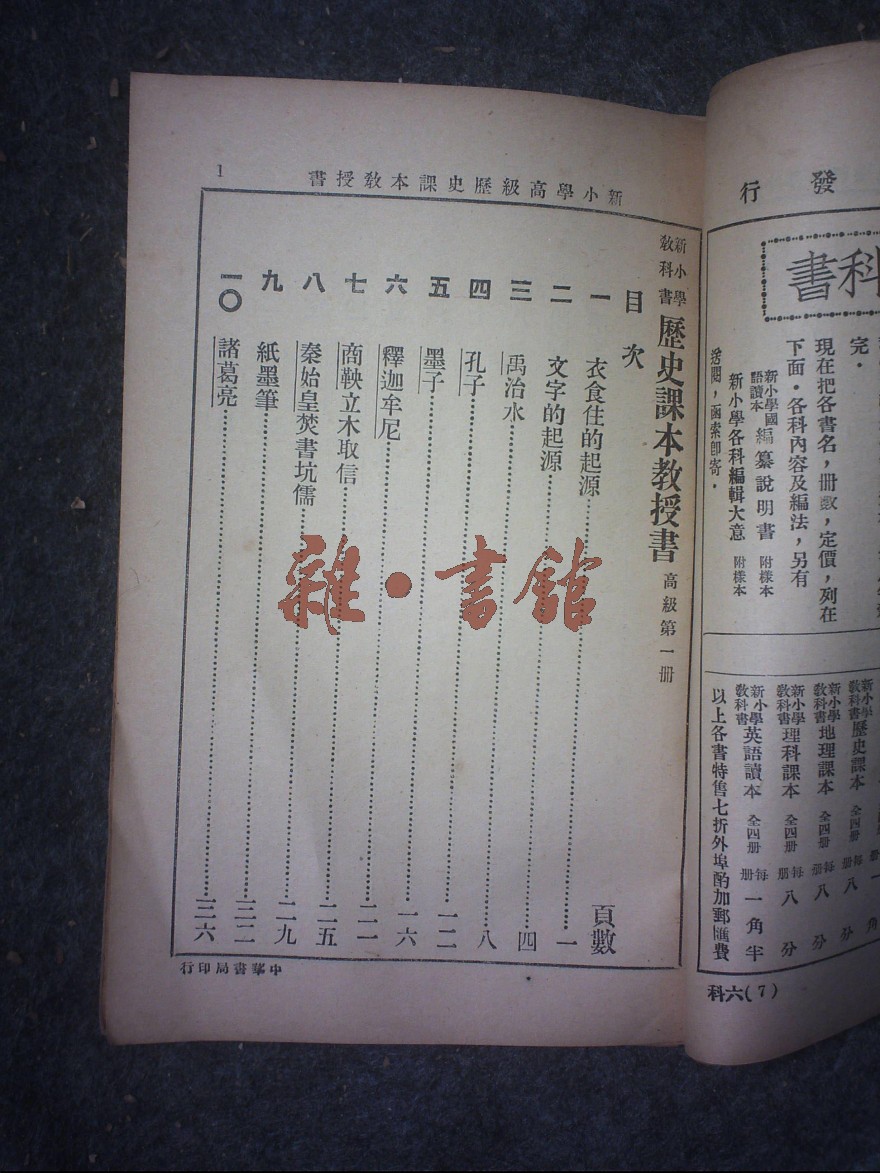 發行
科書
完．
現在把各書名，冊數，定價，列在
下面．各科內容及編法，另有
新小學國語讀本編纂說明書 附樣本
新小學各科編輯大意 附樣本
送閱，函索即寄．
新小學教科書歷史課本 全四冊 每冊 八分
新小學教科書地理課本 全四冊 每冊 八分
新小學教科書理科課本 全四冊 每冊 八分
新小學教科書英語讀本 全四冊 每冊 一角半
以上各書特售七折外埠酌加郵匯費
(7)六科
新小學高級歷史課本教授書
1
新小學教科書 歷史課本教授書 高級第一册
目次 頁數
一 衣食住的起源 一
二 文字的起源 四
三 禹治水 八
四 孔子 一二
五 墨子 一六
六 釋迦牟尼 二一
七 商鞅立木取信 二五
八 秦始皇焚書坑儒 二九
九 紙墨筆 三二
一〇 諸葛亮 三六
中華書局印行
雜·書館